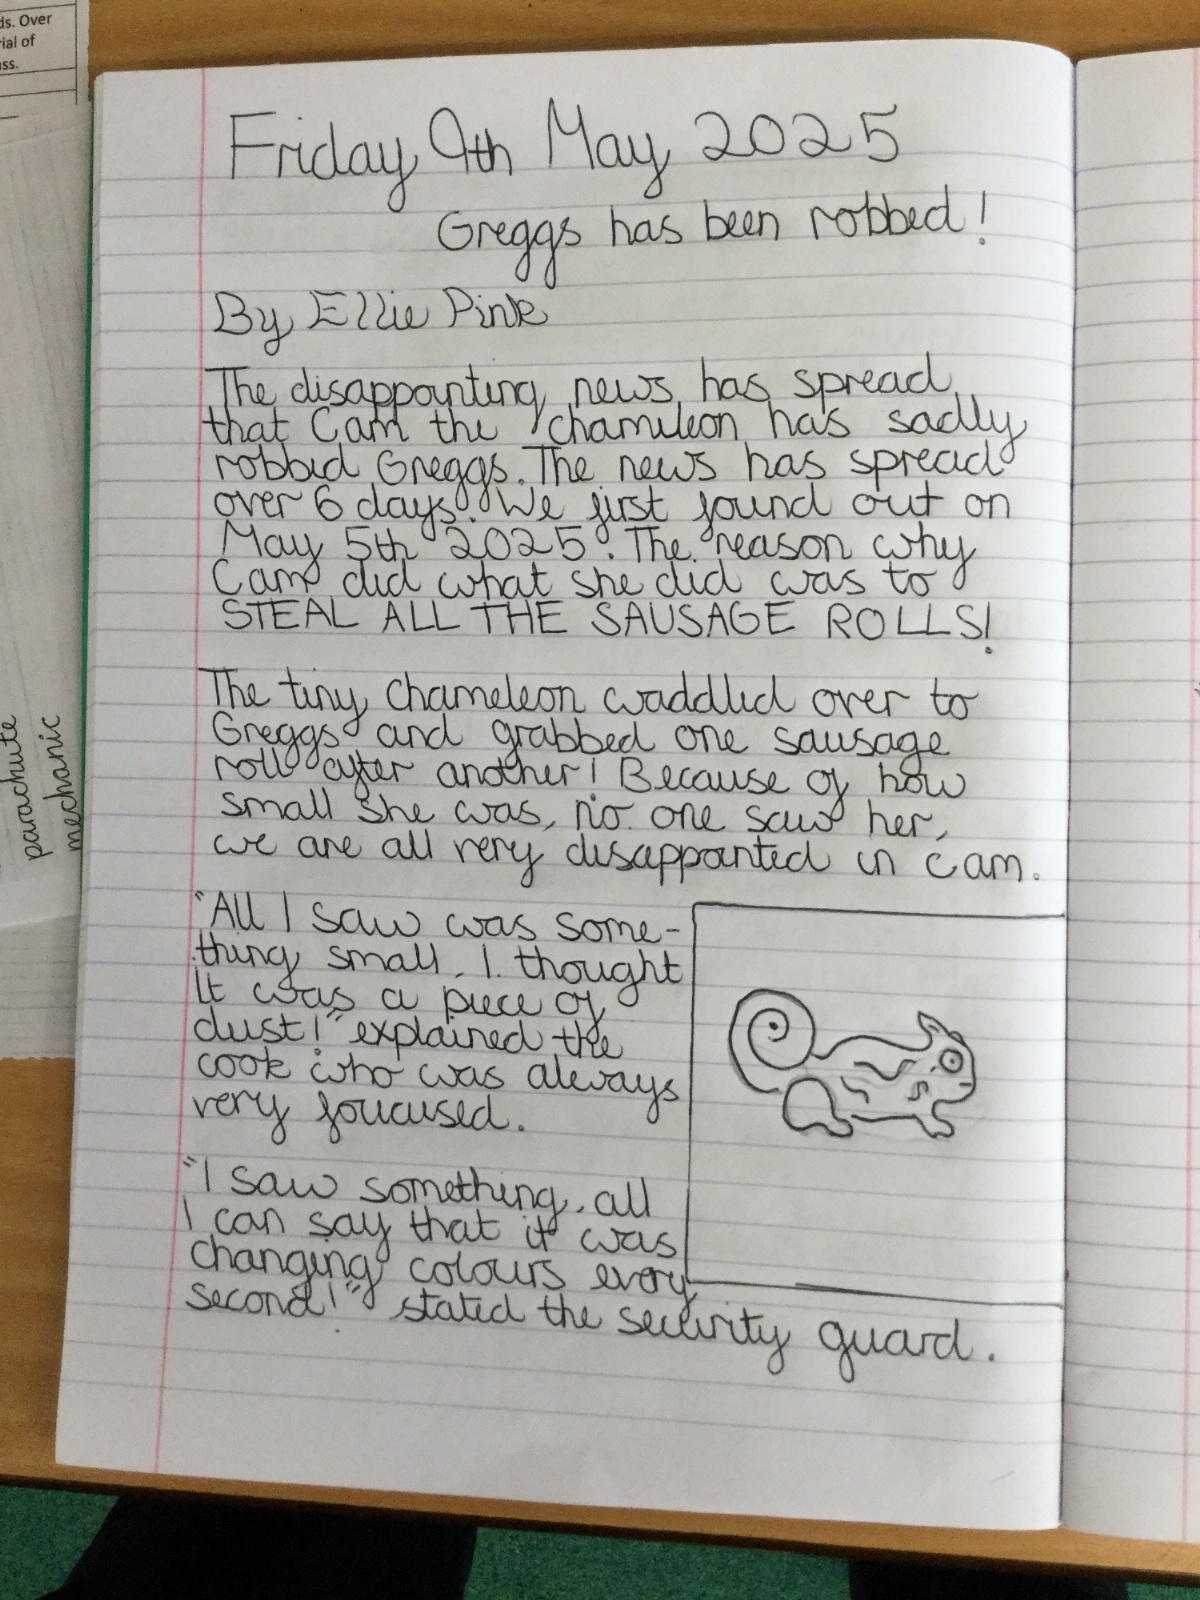 ds. Over
rial of
ss.
parachute
mechanic
Friday 9th May 2025
Greggs has been robbed!
By Ellie Pink
The disappointing news has spread
that Cam the chameleon has sadly
robbed Greggs. The news has spread
over 6 days. We first found out on
May 5th 2025. The reason why
Cam did what she did was to
STEAL ALL THE SAUSAGE ROLLS!
The tiny chameleon waddled over to
Greggs and grabbed one sausage
roll after another! Because of how
small she was, no one saw her,
we are all very disappointed in cam.
"All I saw was some-
thing small, I thought
it was a piece of
dust!" explained the
cook who was always
very foucused.
"I saw something, all
I can say that it was
changing colours every
second!" stated the security guard.